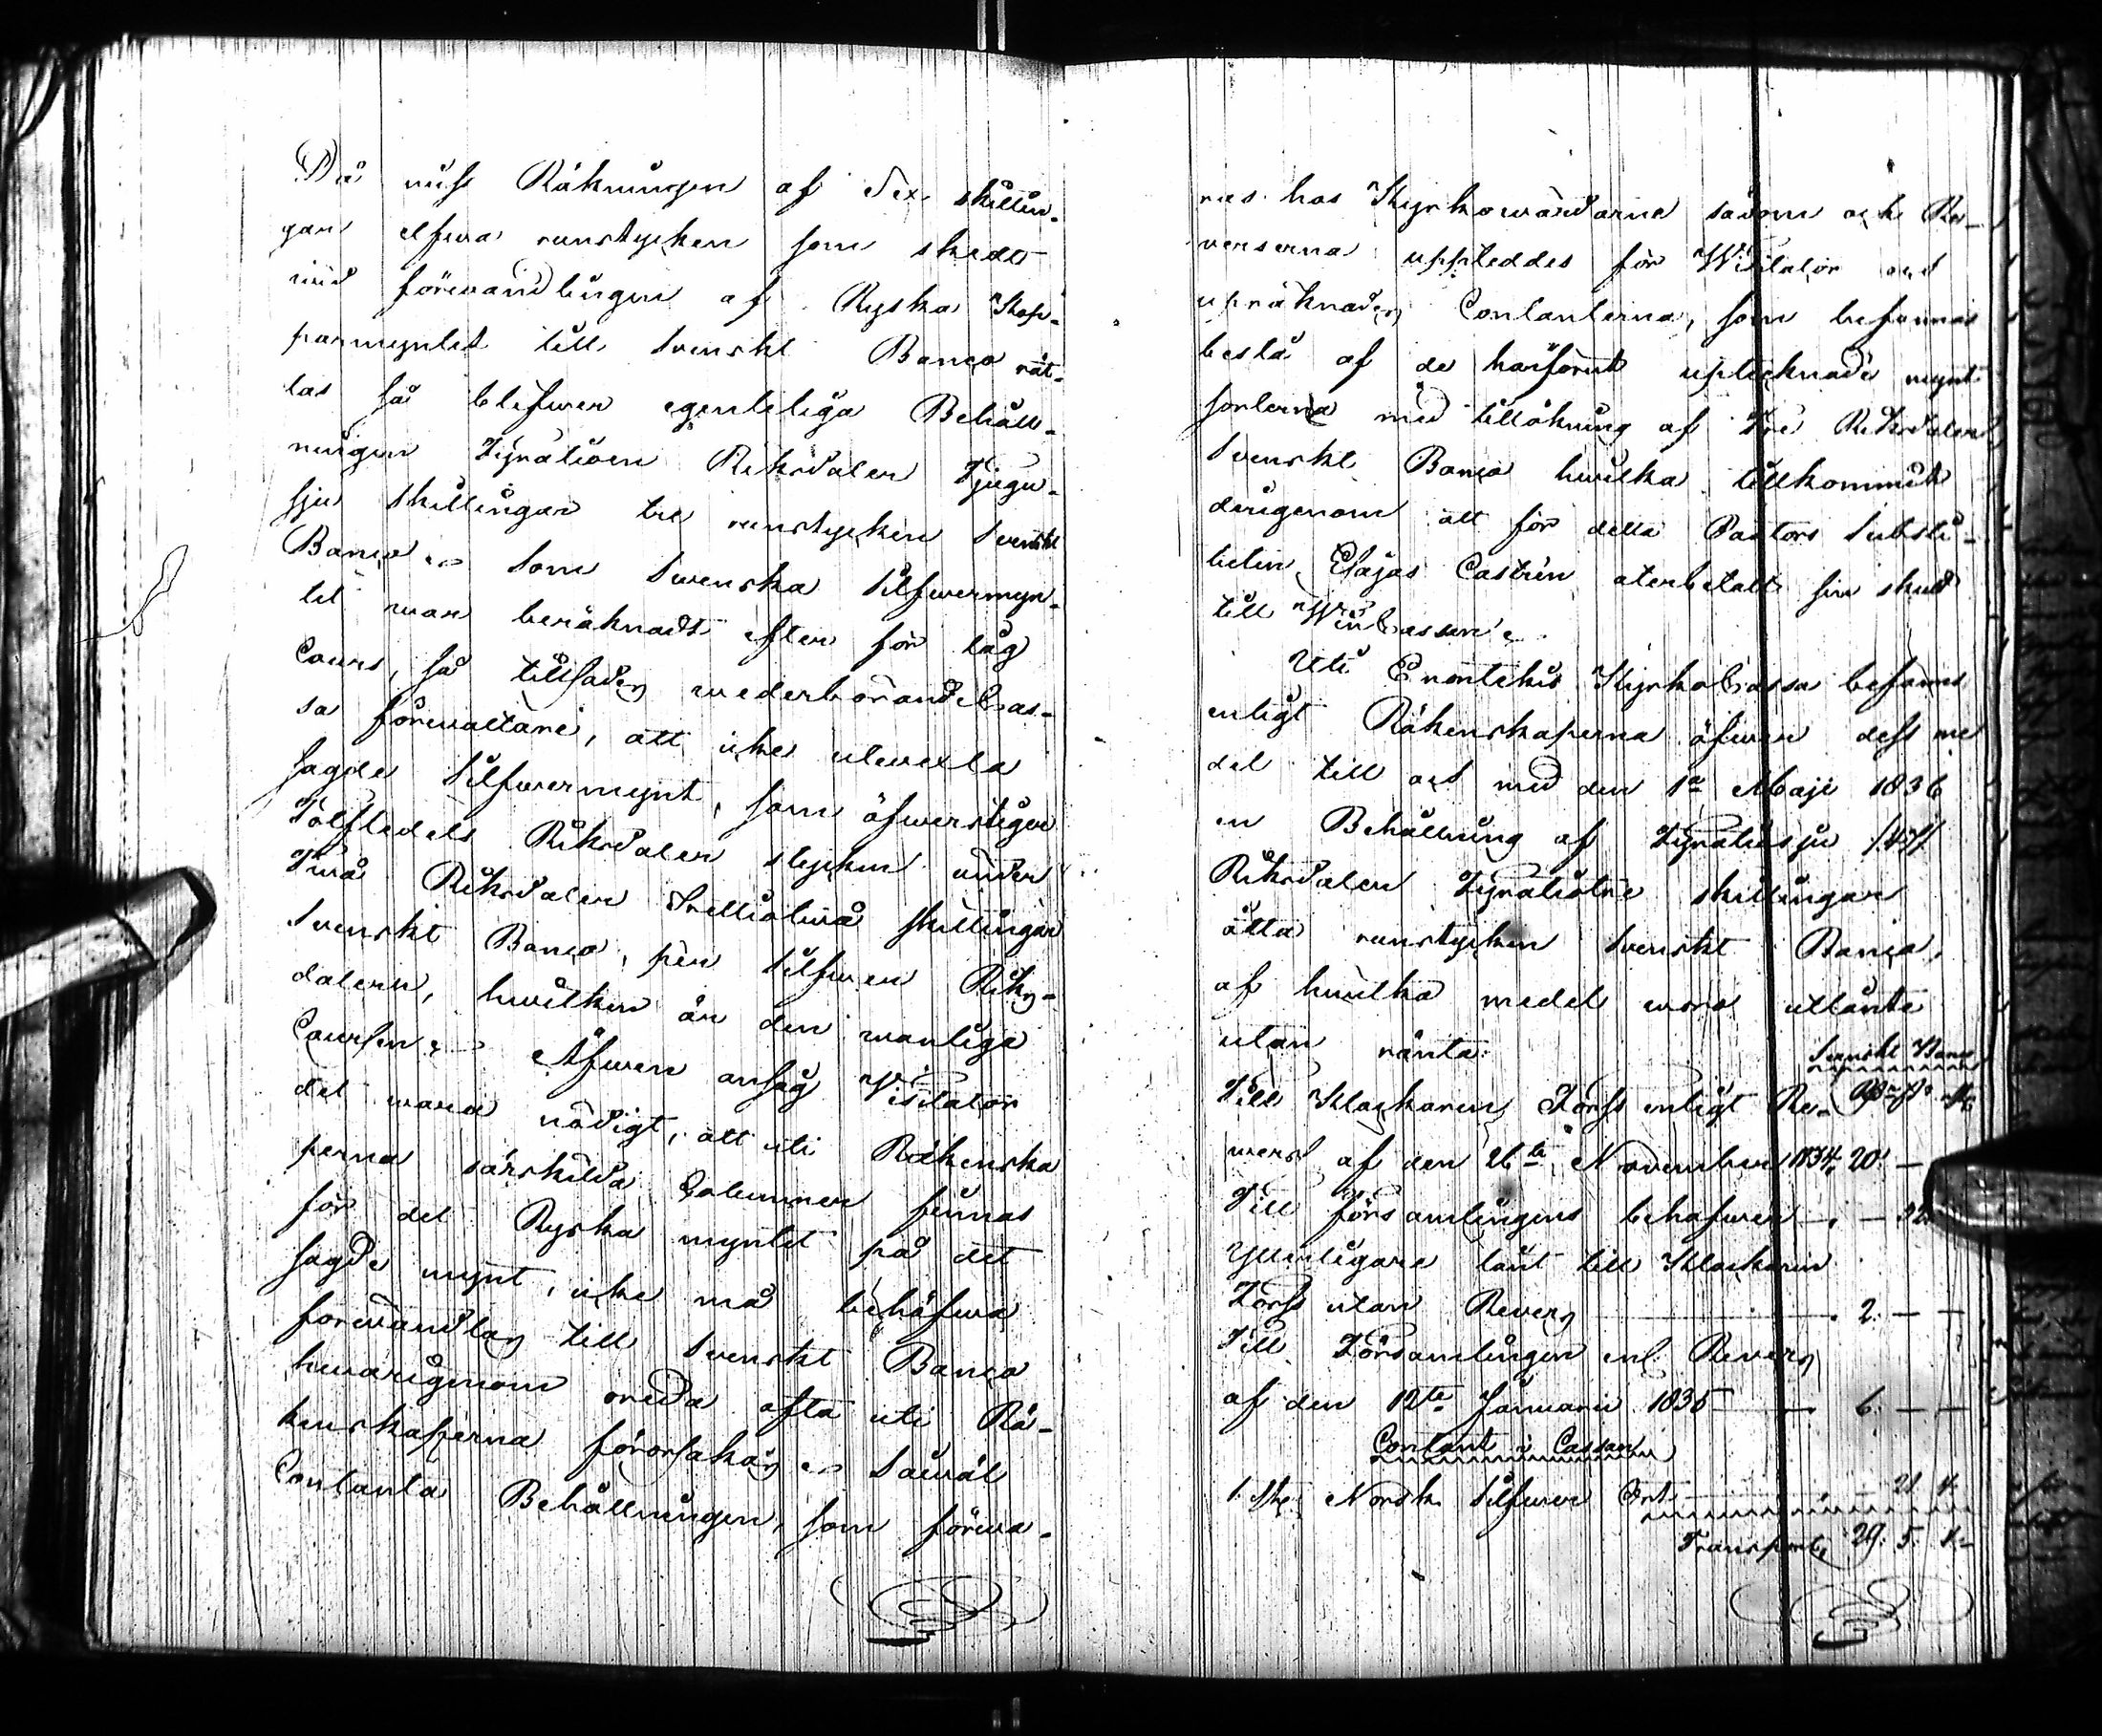 Då nuss Räkningen af Sex skillin-
gar elfwa runstycken som skedt
wid förwandlingen af Ryska Kop-
parmyntet till Svenskt Banco rät-
tas så blifwer egenteliga Behåll-
ningen Fyratioen Riksdaler Tjugu-
sju skillingar tre runstycken Svenskt
Banco. Som Swenska Silfwermyn-
tet war beräknadt efter för låg
Cours, så tillsades wederbörande Cas-
sa förwaltare, att icke utwexla
sagde Silfwermynt, som öfwerstiger
Tolftedels Riksdaler stycken under
Twå Riksdaler trettiotwå skillingar
Svenskt Banco, pèr Silfwer Riks-
dalern, hwilken är den wanliga
Coursen. Äfwen ansåg Visitator
det wara nödigt, att uti Räkenska
perna särskilda Columner finnas
för det Ryska myntet på det
sagde mynt, icke må behöfwa
förwandlas till Svenskt Banco
hwarigenom oreda ofta uti Rä-
kenskaperna förorsakas. Såwäl
Contanta Behållningen, som förwa-
ras hos Kyrkowärdarne såsom ock Re-
verserna uppteddes för Visitator och
upräknades Contanterna, som befannos
bestå af de härförut uptecknade mynt
sorterna med tillökning af Tre Riksdaler
Svenskt Banco hwilka tillkommit
derigenom att för detta Pastors Substi-
tuten Esajas Castrèn återbetalt sin skuld
till Win Cassan.
Uti Enontekis Kyrko Cassa befanns
enligt Räkenskaperna öfwer dess me
del till och med den 1a Maji 1836
en Behållning af Fyratiosju /47/
Riksdaler Fyratiotre skillingar
åtta runstycken Svenskt Banco,
af hwilka medel woro utlånte
utan ränta: Svenskt Banco
Till Klockaren Forss enligt Re-
wers af den 26te November 1834. 20. —
Till församlingens behofwer — . — 32.
Ytterligare lånt till Klockaren
Forss utan Revers . 2. — —
Till Församlingen enl. Revers
af den 12te Januarii 1835 6. — —
Contant i Cassan
1. st. Norsk Silfwer Ort . 21. 4.
Transport, 29. 5. 4.